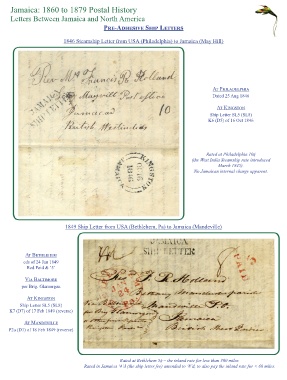 Jamaica: 1860 to 1879 Postal History
Letters Between Jamaica and North America
Pre-Adhesive Ship Letters
1846 Steamship Letter from USA (Philadelphia) to Jamaica (May Hill)
Francis R. Holland
Mayville Post office
Jamaica
10
British West Indies
JAMAICA
SHIP LETTER
KINGSTON
1846
JAMAICA
At Philadelphia
Dated 25 Aug 1846
At Kingston
Ship Letter SL5 (SL5)
K6 (D7) of 16 Oct 1846
Rated at Philadelphia 10¢
(the West India Steamship rate introduced
March 1845).
No Jamaican internal charge apparent.
1849 Ship Letter from USA (Bethlehem, Pa) to Jamaica (Mandeville)
At Bethlehem
cds of 24 Jan 1849
Red Paid & '5'
Via Baltimore
per Brig. Glamorgan
At Kingston
Ship Letter SL5 (SL5)
K7 (D7) of 17 Feb 1849 (reverse)
At Mandeville
P2a (D1) of 18 Feb 1849 (reverse)
JAMAICA
SHIP LETTER
PAID
Holland
Jamaica
British West Indies
Rated at Bethlehem 5¢ – the inland rate for less than 300 miles.
Rated in Jamaica '4'd (the ship letter fee) amended to '8'd, to also pay the inland rate for < 60 miles.